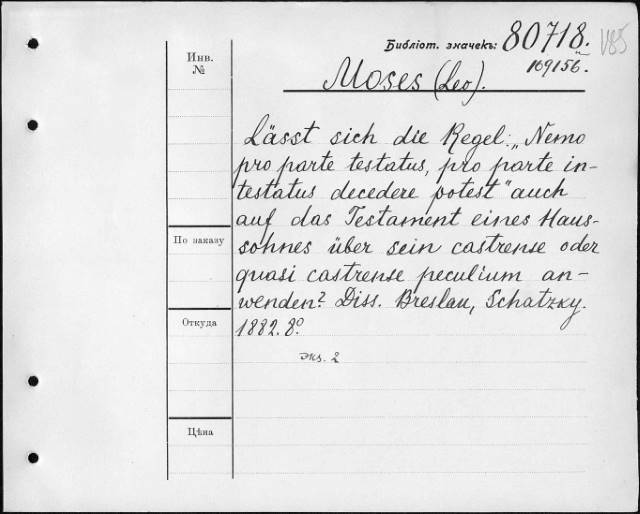 Библіот. значекъ: 80718.
V85
и
109156.
Инв.
№
Moses (Leo).
Lässt sich die Regel: „Nemo
pro parte testatus, pro parte in-
testatus decedere potest" auch
auf das Testament eines Haus-
По заказу
sohnes über sein castrense oder
quasi castrense peculium an-
wenden? Diss. Breslau, Schatzky.
Откуда
1882. 8º
экз. 2
Цѣна